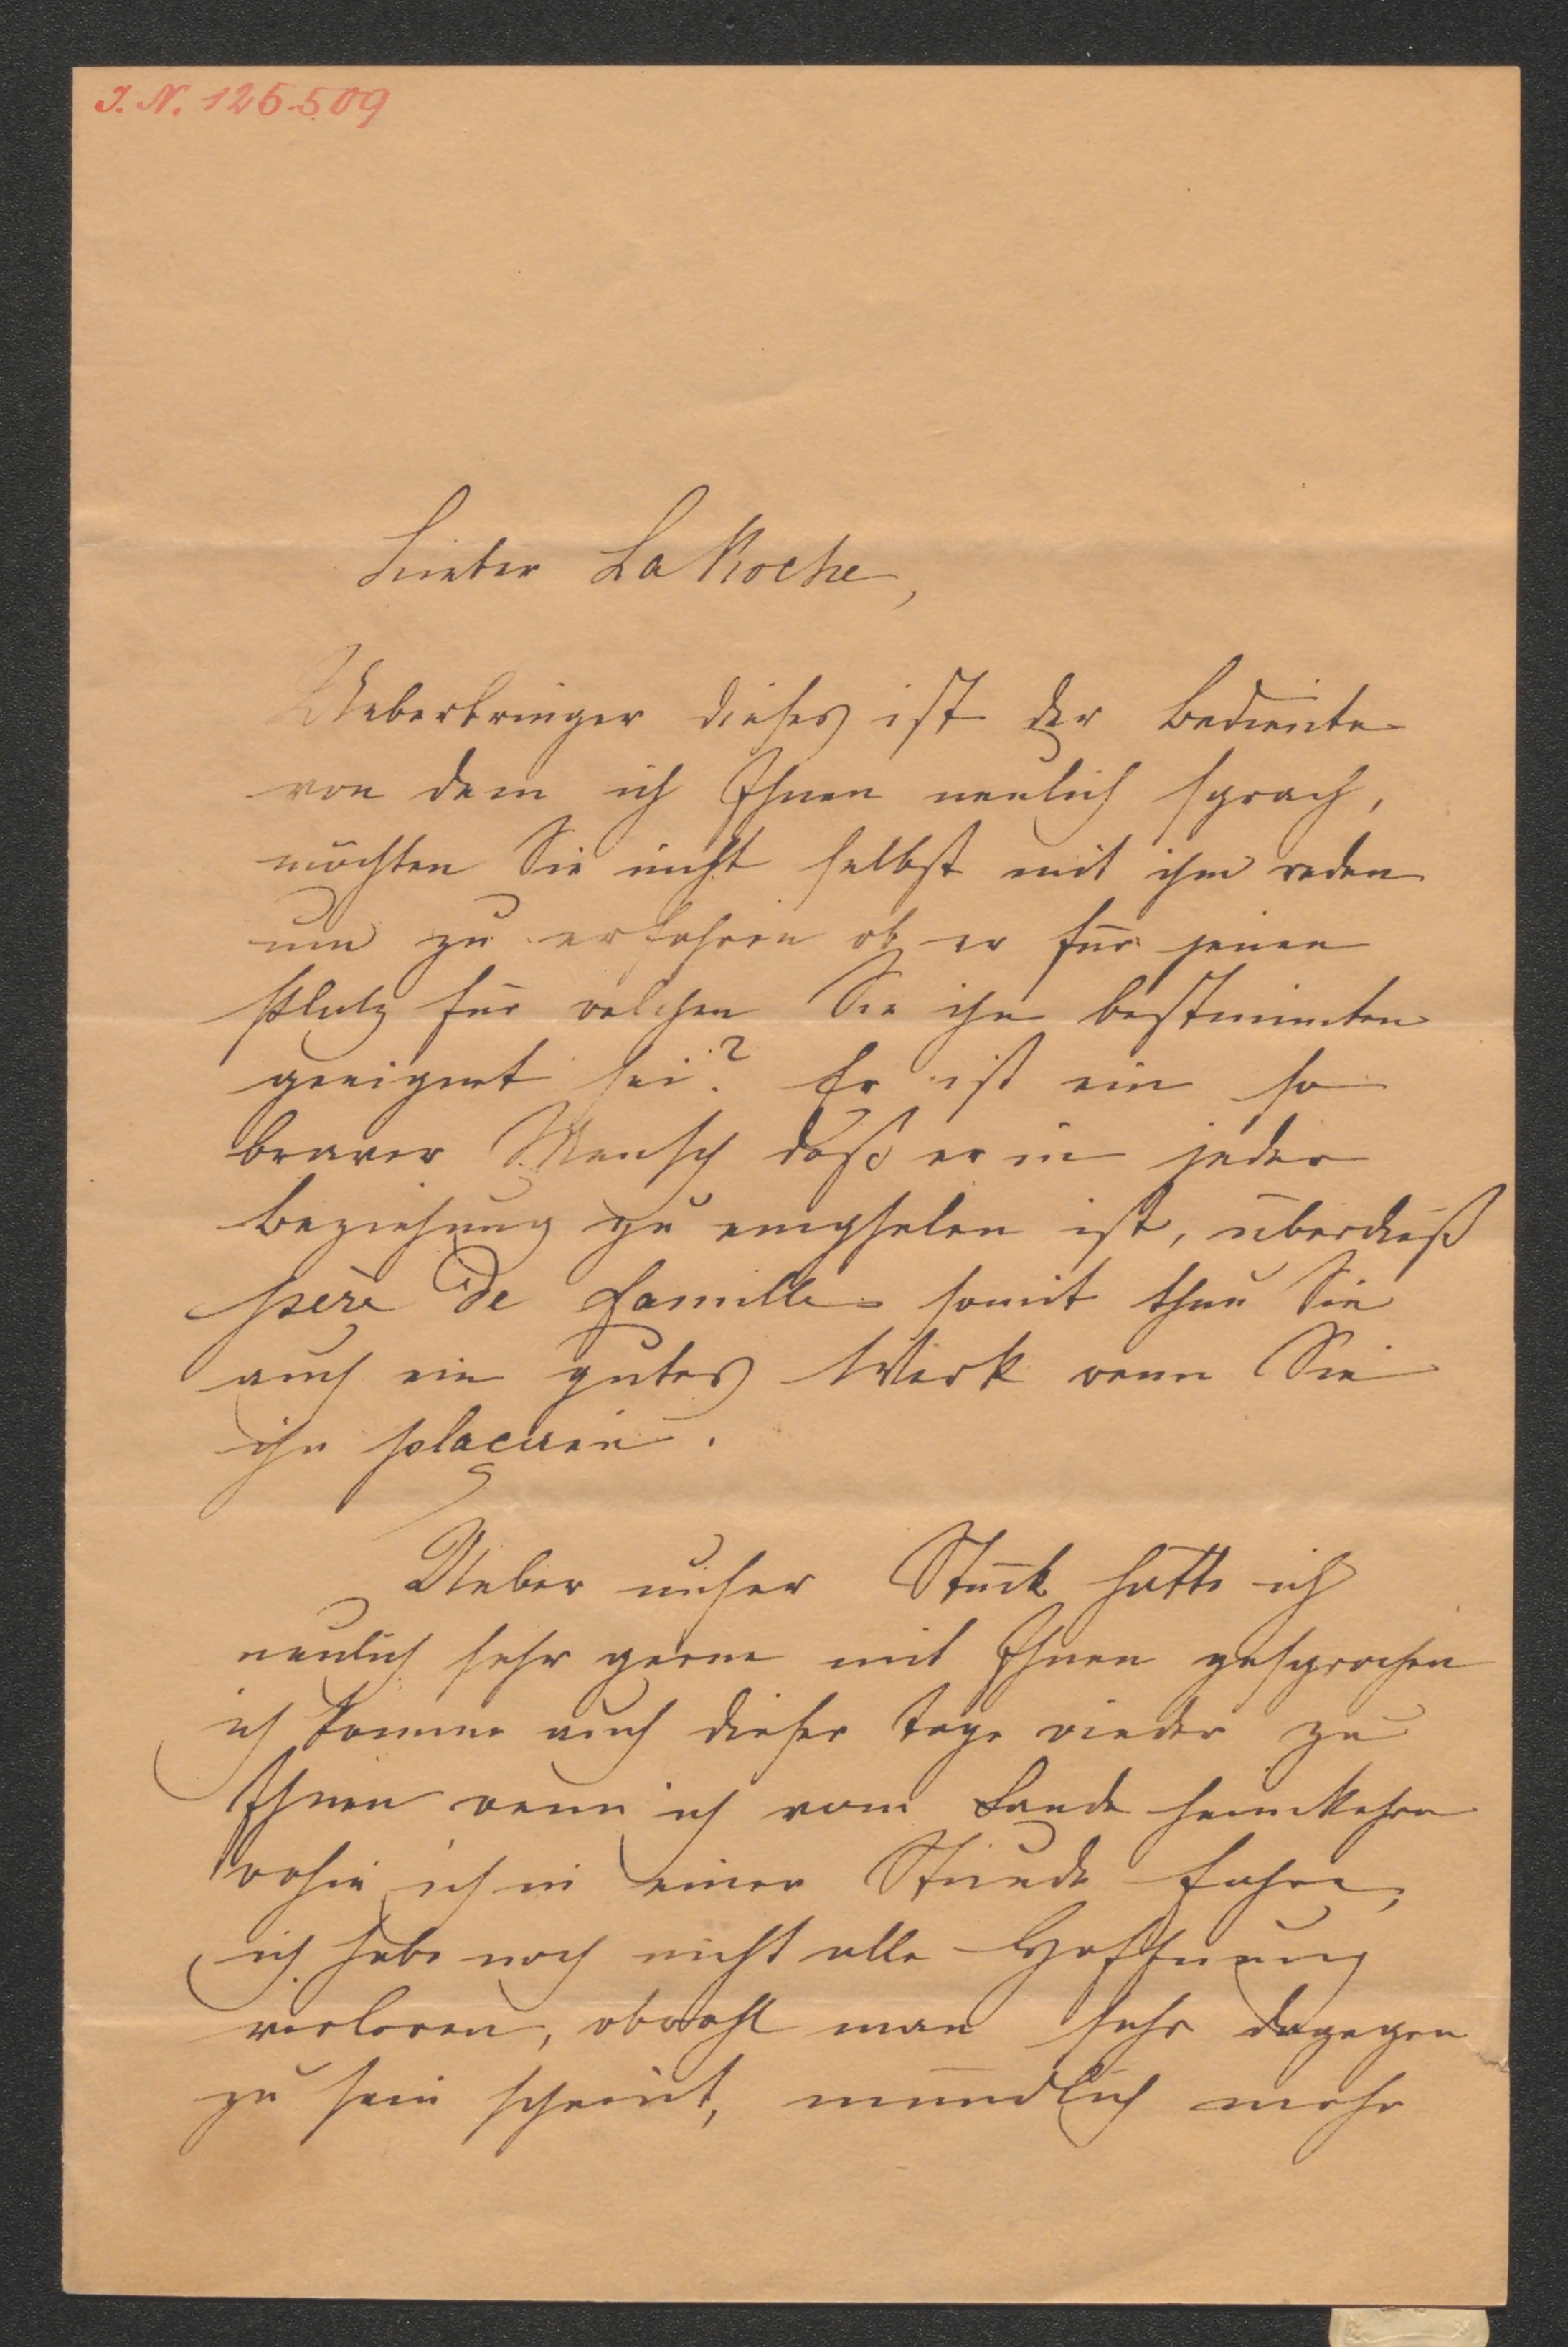 J. N. 125.509
Lieber La Roche,
Ueberbringer dieses ist der Bediente
von dem ich Ihnen neulich sprach,
möchten Sie nicht selbst mit ihm reden
um zu erfahren ob er für jenen
Platz für welchen Sie ihn bestimmten
geeignet sei? Er ist ein so
braver Mensch daß er in jeder
Beziehung zu empfelen ist, überdieß
père de famille somit thun Sie
auch ein gutes Werk wenn Sie
ihn placiren.
Ueber unser Stück hätte ich
neulich sehr gerne mit Ihnen gesprochen
ich komme auch dieser Tage wieder zu
Ihnen wenn ich vom Lande heimkehre
wohin ich in einer Stunde fahre,
ich habe noch nicht alle Hoffnung
verloren, obwohl man sehr dagegen
zu sein scheint, mündlich mehr